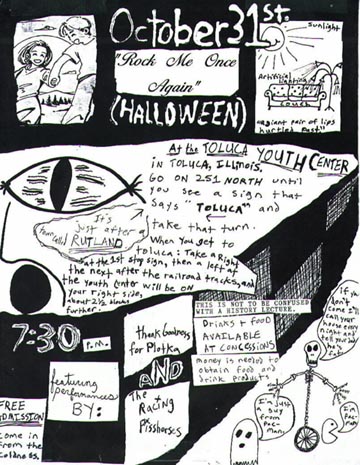 October 31st.
"Rock Me Once
Again"
(HALLOWEEN)
Sunlight
Artificial
Lighting
Couch
"a giant pair of lips
hurtles past"
At the TOLUCA YOUTH CENTER
IN TOLUCA, ILLINOIS.
GO ON 251 NORTH until
you see a sign that
says "TOLUCA" and
take that turn.
It's
just after a
town called RUTLAND
When you get to
Toluca: Take a Right
at the 1st stop sign, then a left at
the next after the railroad tracks, and
the youth center will be on
your right side,
about 2½ blocks
further.
7:30 P.M.
THIS IS NOT TO BE CONFUSED
WITH A HISTORY LECTURE.
Drinks + Food
AVAILABLE
AT CONCESSIONS
money is needed to
obtain food and
drink products
featuring
performances
BY:
thank Goodness
for Plotka
AND
The
Racing
Pisshorses
FREE
ADMISSION
come in
from the
coldness.
If you
don't come I'll
call your
house every
night and
tell you
I'm just
a guy
from
Pac-
man.
I'm
Pac
man